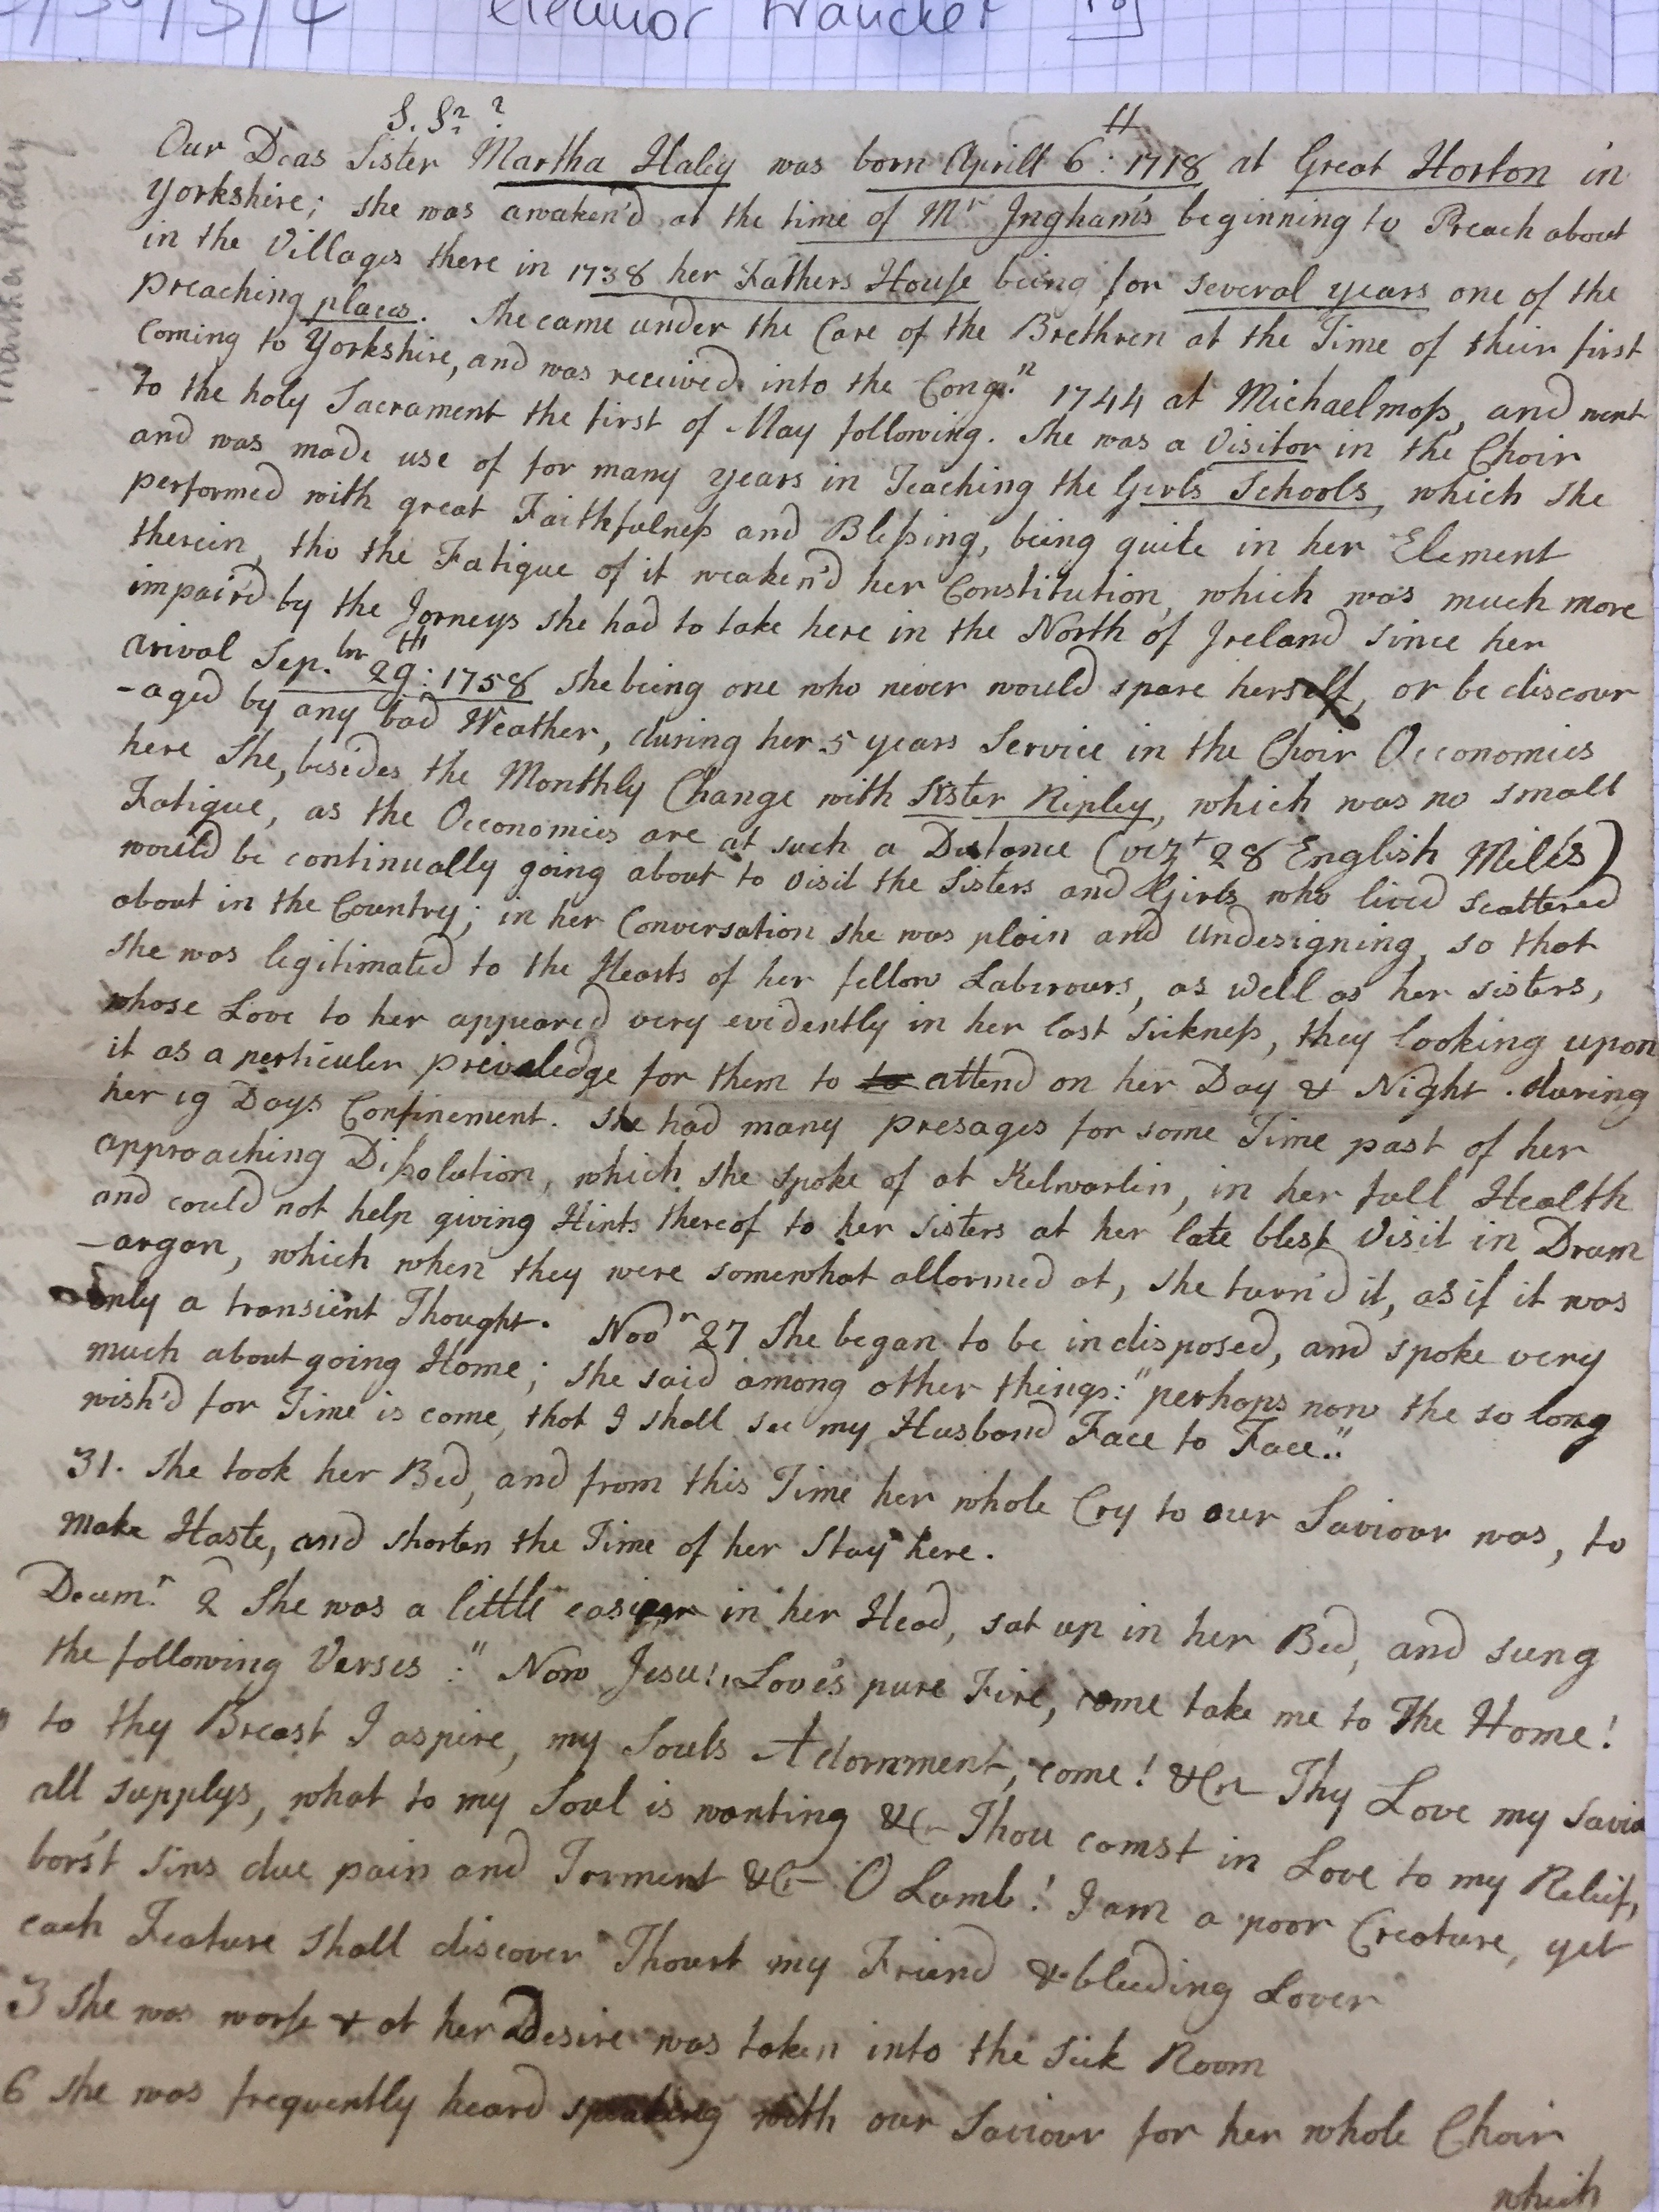 Eleanor
S. Sr. ?
Our Deas Sister Martha Haley was born Aprill 6th: 1718 at Great Horton in
Yorkshire; she was awaken'd at the time of Mr Ingham's beginning to Preach about
in the Villages there in 1738 her Fathers House being for several years one of the
preaching places. She came under the Care of the Brethren at the Time of their first
Coming to Yorkshire, and was received into the Congn. 1744 at Michaelmass, and went
to the holy Sacrament the first of May following. She was a Visitor in the Choir
and was made use of for many years in Teaching the Girls Schools, which she
performed with great Faithfulness and Blessing, being quite in her Element
therein, tho the Fatigue of it weaken'd her Constitution, which was much more
impair'd by the Jorneys she had to take here in the North of Ireland since her
arival Sep.br 29th: 1758 she being one who never would spare herself, or be discour
-aged by any bad Weather, during her 5 years Service in the Choir Oeconomies
here She, besides the Monthly Change with Sister Ripley, which was no small
Fatigue, as the Oeconomies are at such a Distance (vizt 28 English Miles)
would be continually going about to visit the Sisters and Girls who lived scattered
about in the Country; in her Conversation she was plain and Undesigning, so that
she was legitimated to the Hearts of her fellow Labirours, as well as her sisters,
whose Love to her appeared very evidently in her last Sickness, they looking upon
it as a perticuler preivaledge for them to to attend on her Day & Night during
her 19 Days Confinement. She had many presages for some Time past of her
approaching Dissolution, which she spoke of at Kilwarlin, in her full Health
and could not help giving Hints thereof to her Sisters at her late blest Visit in Drum
-argan, which when they were somewhat allarmed at, she turn'd it, as if it was
only a transient Thought. Novr 27 She began to be indisposed, and spoke very
much about going Home; she said among other things: "perhaps now the so long
wish'd for Time is come, that I shall see my Husband Face to Face."
31. She took her Bed, and from this Time her whole Cry to our Saviour was, to
make Haste, and shorten the Time of her Stay here.
Decemr. 2 She was a little easier in her Head, sat up in her Bed, and sung
the following Verses: "Now Jesu! Love's pure Fire, come take me to The Home!
to thy Breast I aspire, my Souls Adornment, come! &c Thy Love my Savio
all supplys, what to my Soul is wanting &c Thou comst in Love to my Relief,
borst sins due pain and Torment &c O Lamb! I am a poor Creature, yet
each Feature shall discover Thourt my Friend & bleeding Lover
3 She was worse & at her Desire was taken into the Sick Room
6 She was frequently heard speaking with our Saviour for her whole Choir
which